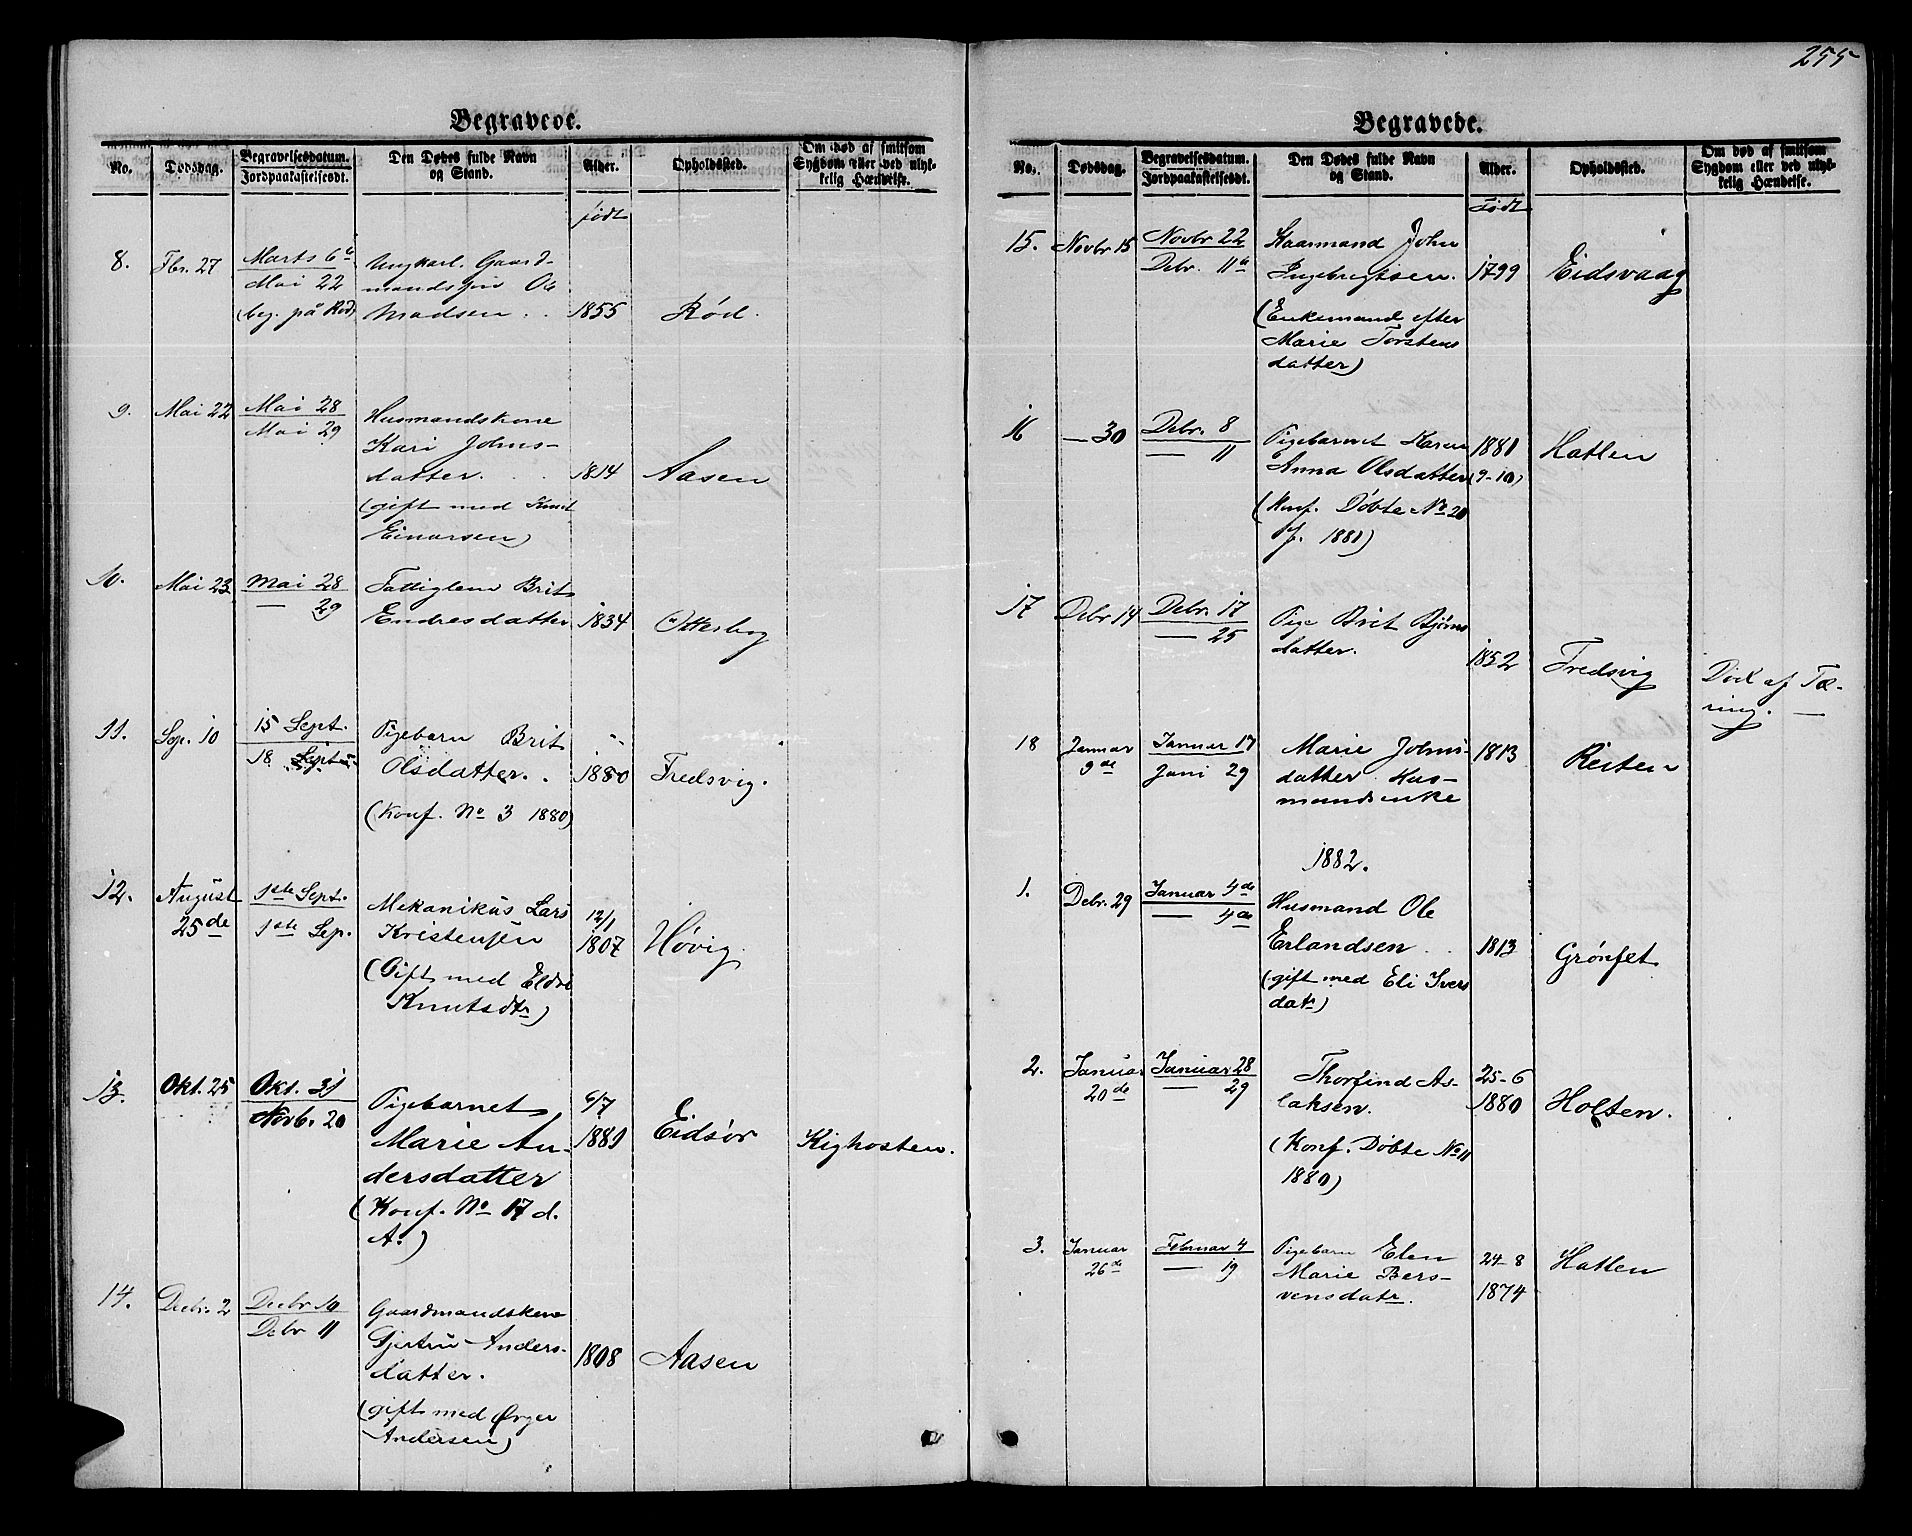 255
Begravede.
No.
Dødsdag.
Begravelsesdatum.
Jordpaakastelsesdt.
Den Dødes fulde Navn
og Stand.
Alder.
Opholdssted.
Om død af smitsom
Sygdom eller ved ulyk-
kelig Hændelse.
født
8. Fbr. 27
Marts 6te
Mai 22
(beg. på Rød)
Ungkarl. Gaard-
mandssøn Ole
Madsen . .
1855
Rød.
9. Mai 22
Mai 28
Mai 29
Husmandskone
Kari Johns-
datter. . .
(gift med Knut
Einarsen)
1814
Aasen
10. Mai 23
Mai 28
— 29
Fattiglem Brit
Endresdatter
1834
Otterbog
11. Sep. 10
15 Sept.
18 Sept.
Pigebarn Brit
Olsdatter. .
(Konf. No 3 1880)
1880
Fredsvig.
12. August
25de
1ste Sept.
1ste Sep.
Mekanikus Lars
Kristensen
(Gift med Eldri
Knutsdtr)
12/1
1807
Høvig.
13. Okt. 25
Okt. 31
Novb. 20
Pigebarnet
Marie An-
dersdatter
(Konf. No 17 d.
A.)
6/7
1881
Eidsør
Kighosten.
14. Decbr. 2
Decbr 10
Debr 11
Gaardmandskone
Gjertru Anders-
datter.
(gift med Ørger
Andersen)
1808
Aasen
Begravede.
No.
Dødsdag.
Begravelsesdatum.
Jordpaakastelsesdt.
Den Dødes fulde Navn
og Stand.
Alder.
Opholdssted.
Om død af smitsom
Sygdom eller ved ulyk-
kelig Hændelse.
Født
15. Novbr 15
Novbr 22
Debr. 11te
Kaarmand John
Ingebrigtsen.
(Enkemand efter
Marie Torstens
datter)
1799
Eidsvaag
16 — 30
Debr. 8
— 11
Pigebarnet Karen
Anna Olsdatter
(Konf. Døbte No 20
f. 1881)
1881
(9-10)
Hatlen
17 Debr 14
Debr. 17
— 25
Pige Brit Bjørns
datter.
1852
Fredsvig
Død af Tæ-
ring. —
18 Januar
9de
Januar 17
Juni 29
Marie Johns-
datter Hus-
mandsenke
1813
Reiten
1882.
1. Debr. 29
Januar 4de
— 4de
Husmand Ole
Erlandsen . .
(gift med Eli Ivers
datr)
1813
Grønset
2. Januar
20de
Januar 28
— 29
Thorfind As-
laksen.
(Konf. Døbte No 11
1880)
25-6
1880
Holten.
3. Januar
26de
Februar 4
— 19
Pigebarn Elen
Marie Bers-
vensdatr.
24-8
1874
Hatlen